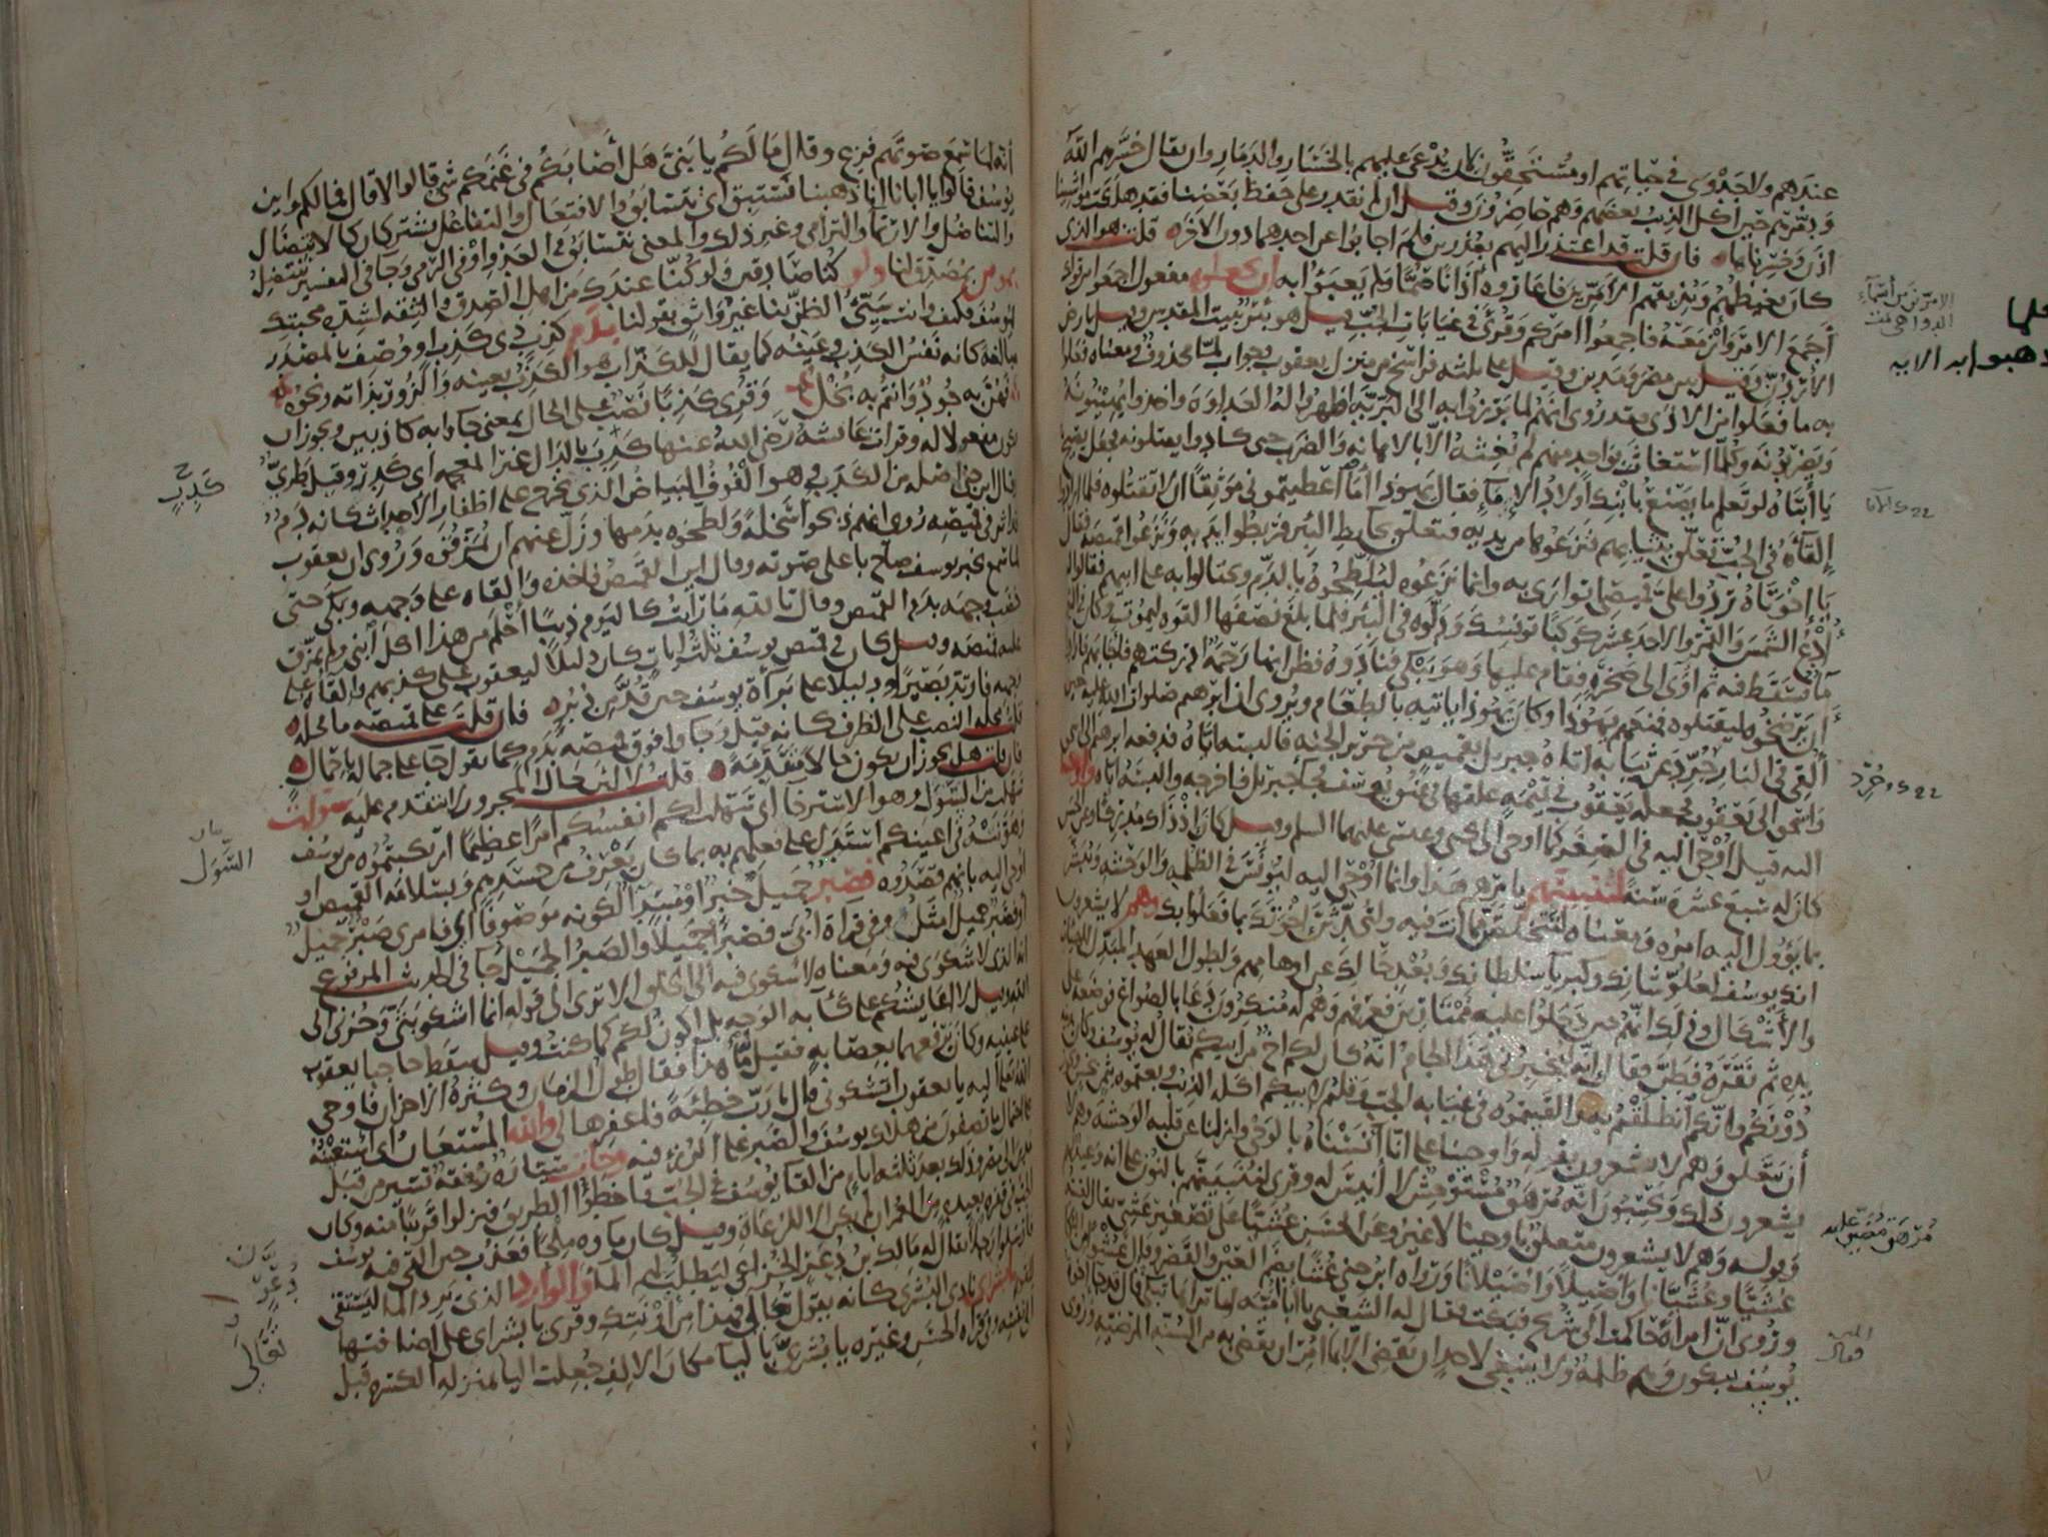 عندهم ولا جدوى في حياتهم او مستحقون كان يدعى عليهم بالخسار والدمار وان يقال خسرهم الله
ودمرهم حين اكل الذئب بعضهم وهم حاضرون وقيل ان لم نقدر على حفظ بعضنا فقد هلكت مواشينا
اذن وخسرناها فان قلت قد اعتذر اليهم بعذرين فلم اجابوا عن احدهما دون الاخر قلت هو الذي
كان يغيظهم ويذيقهم الامرين فاعاروه اذانا صما ولم يعبؤا به ان يجعلوه مفعول اجمعوا من قولك
اجمع الامر وازمعه فاجمعوا امركم وقرئ في غيابات الجب قيل هو بئر بيت المقدس وقيل بارض
الاردن وقيل بين مصر ومدين وقيل على ثلثة فراسخ من منزل يعقوب وجواب لما محذوف ومعناه فعلوا
به ما فعلوا من الاذى فقد روى انهم لما برزوا به الى البرية اظهروا له العداوة واخذوا يهينونه
ويضربونه وكلما استغاث بواحد منهم لم يغثه الا بالاهانة والضرب حتى كادوا يقتلونه فجعل يصيح
يا ابتاه لو تعلم ما يصنع بابنك اولاد الاماء فقال يهوذا اما اعطيتموني موثقا ان لا تقتلوه فلما ارادوا
القاه في الجب تعلق بثيابهم فنزعوها من يديه فتعلق بحايط البئر فربطوا يديه ونزعوا قميصه فقال
يا اخوتاه ردوا علي قميصي اتوارى به وانما نزعوه ليلطخوه بالدم ويحتالوا به على ابيهم فقالوا له
ادع الشمس والقمر والاحد عشر كوكبا تونسك ودلوه في البئر فلما بلغ نصفها القوه ليموت وكان في البئر
ماء فسقط فيه ثم اوى الى صخرة فقام عليها وهو يبكي فنادوه فظن انها رحمة ادركتهم فاجابهم فارادوا
ان يرضخوه ليقتلوه فمنعهم يهوذا وكان يهوذا ياتيه بالطعام ويروى ان ابرهيم صلوات الله عليه حين
القي في النار جرد عن ثيابه اتاه جبريل بقميص من حرير الجنة فالبسه اياه فدفعه ابرهيم الى اسحق
واسحق الى يعقوب فجعله يعقوب في تميمة علقها في عنق يوسف فجاء جبريل فاخرجه والبسه اياه واوحينا
اليه قيل اوحى اليه في الصغر كما اوحى الى يحيى وعيسى عليهما السلم وقيل كان اذ ذاك مدركا وعن الحسن
كان له سبع عشرة سنة لتنبئنهم بامرهم هذا وانما اوحى اليه ليونس في الظلمة والوحشة ويبشر
بما يؤول اليه امره ومعناه لتتخلصن مما انت فيه ولتحدثن اخوتك بما فعلوا بك وهم لا يشعرون
انك يوسف لعلو شانك وكبرياء سلطانك وبعد حالك عن اوهامهم ولطول العهد المبدل للهيات
والاشكال وذلك انهم حين دخلوا عليه ممتارين فعرفهم وهم له منكرون دعا بالصواع فوضعه على
يده ثم نقره فطن فقال انه ليخبرني هذا الجام انه كان لكم اخ من ابيكم يقال له يوسف وكان يدنيه
دونكم وانكم انطلقتم به والقيتموه في غيابة الجب وقلتم لابيكم اكله الذئب وبعتموه بثمن بخس
ان يتعلق وهم لا يشعرون بقوله واوحينا على انا آنسناه بالوحي وازلنا عن قلبه الوحشة وهم لا
يشعرون ذلك ويحسبون انه مرهق مستوحش لا انيس له وقرئ لننبئنهم بالنون على انه وعيد لهم
وقوله وهم لا يشعرون متعلق باوحينا لا غير وعن الحسن عشيا على تصغير عشي يقال لقيته
عشيا وعشيانا واصيلا واصيلانا ورواه ابن جني عشا بضم العين والقصر وقال عشوا من البكاء
وروى ان امراة حاكمت الى شريح فبكت فقال له الشعبي يا ابا امية اما تراها تبكي فقال قد جاء اخوة
يوسف يبكون وهم ظلمة ولا ينبغي لاحد ان يقضي الا بما امر ان يقضي به من السنة المرضية وروى
فلما
ذهبوا به الاية
جرد
مرهق مضيق عليه
انه لما سمع صوتهم فزع وقال ما لكم يا بني هل اصابكم في غنمكم شي قالوا لا قال فما لكم واين
يوسف قالوا يا ابانا انا ذهبنا نستبق اي نتسابق والافتعال والتفاعل يشتركان كالانتضال
والتناضل والارتماء والترامي وغير ذلك والمعنى نتسابق في العدو او في الرمي وجا في التفسير ننتضل
بمومن بمصدق لنا ولو كنا صادقين ولو كنا عندك من اهل الصدق والثقة لشدة محبتك
ليوسف فكيف وانت سيئ الظن بنا غير واثق بقولنا بدم كذب ذي كذب او وصف بالمصدر
مبالغة كانه نفس الكذب وعينه كما يقال للكذاب هو الكذب بعينه والزور بذاته ونحوه
فهن به جود وانتم به بخل وقرئ كذبا نصب على الحال بمعنى جاوا به كاذبين ويجوز ان
يكون مفعولا له وقرات عائشة رضي الله عنها كدب بالدال غير المعجمة اي كدر وقيل طري
وقال ابن جني اصله من الكدب وهو الفوف البياض الذي يخرج على اظفار الاحداث كانه دم
قد اثر في قميصه روى انهم ذبحوا سخلة ولطخوه بدمها وزل عنهم ان يمزقوه وروى ان يعقوب
لما سمع بخبر يوسف صاح باعلى صوته وقال اين القميص فاخذه والقاه على وجهه وبكى حتى
خضب وجهه بدم القميص وقال تالله ما رايت كاليوم ذئبا احلم من هذا اكل ابني ولم يمزق
عليه قميصه وقيل كان في قميص يوسف ثلث ايات كان دليلا ليعقوب على كذبهم والقاه على
وجهه فارتد بصيرا ودليلا على براة يوسف حين قد من دبره فان قلت على قميصه ما محله
قلت محله النصب على الظرف كانه قيل وجاوا فوق قميصه بدم كما تقول جا على جماله باحمال
فان قلت هل يجوز ان يكون حالا متقدمة قلت لا لان حال المجرور لا تتقدم عليه سولت
سهلت من السول وهو الاسترخا اي سهلت لكم انفسكم امرا عظيما ارتكبتموه من يوسف
وهونته في اعينكم استدل على فعلهم به بما كان يعرف من حسدهم وبسلامة القميص او
اوحى اليه بانهم قصدوه فصبر جميل خبر او مبتدا لكونه موصوفا اي فامري صبر جميل
او فصبر جميل امثل وفي قراة ابي فصبرا جميلا والصبر الجميل جا في الحديث المرفوع
انه الذي لا شكوى فيه ومعناه لا شكوى فيه الى الخلق الا ترى الى قوله انما اشكو بثي وحزني الى
الله وقيل لا اعايشكم على كآبة الوجه بل اكون لكم كما كنت وقيل سقط حاجبا يعقوب
على عينيه وكان يرفعهما بعصابة فقيل له ما هذا فقال طول الزمان وكثرة الاحزان فاوحى
الله تعالى اليه يا يعقوب اتشكوني قال يا رب خطيئة فاغفرها لي والله المستعان اي استعينه
على احتمال ما تصفون من هلاك يوسف والصبر على الرزء فيه وجات سيارة رفقة تسير من قبل
مدين الى مصر وذلك بعد ثلثة ايام من القاء يوسف في الجب فاخطؤا الطريق فنزلوا قريبا منه وكان
الجب في قفرة بعيدة من العمران لم يكن الا للرعاة وقيل كان ماوه ملحا فعذب حين القي فيه يوسف
فارسلوا رجلا يقال له مالك بن ذعر الخزاعي ليطلب لهم الماء والوارد الذي يرد الماء ليستقي
للقوم يا بشرى نادى البشرى كانه يقول تعالي فهذا من آونتك وقرئ يا بشراي على اضافتها
الى نفسه وفي قراة الحسن وغيره يا بشري بالياء مكان الالف جعلت الياء بمنزلة الكسرة قبل
كدب
السول